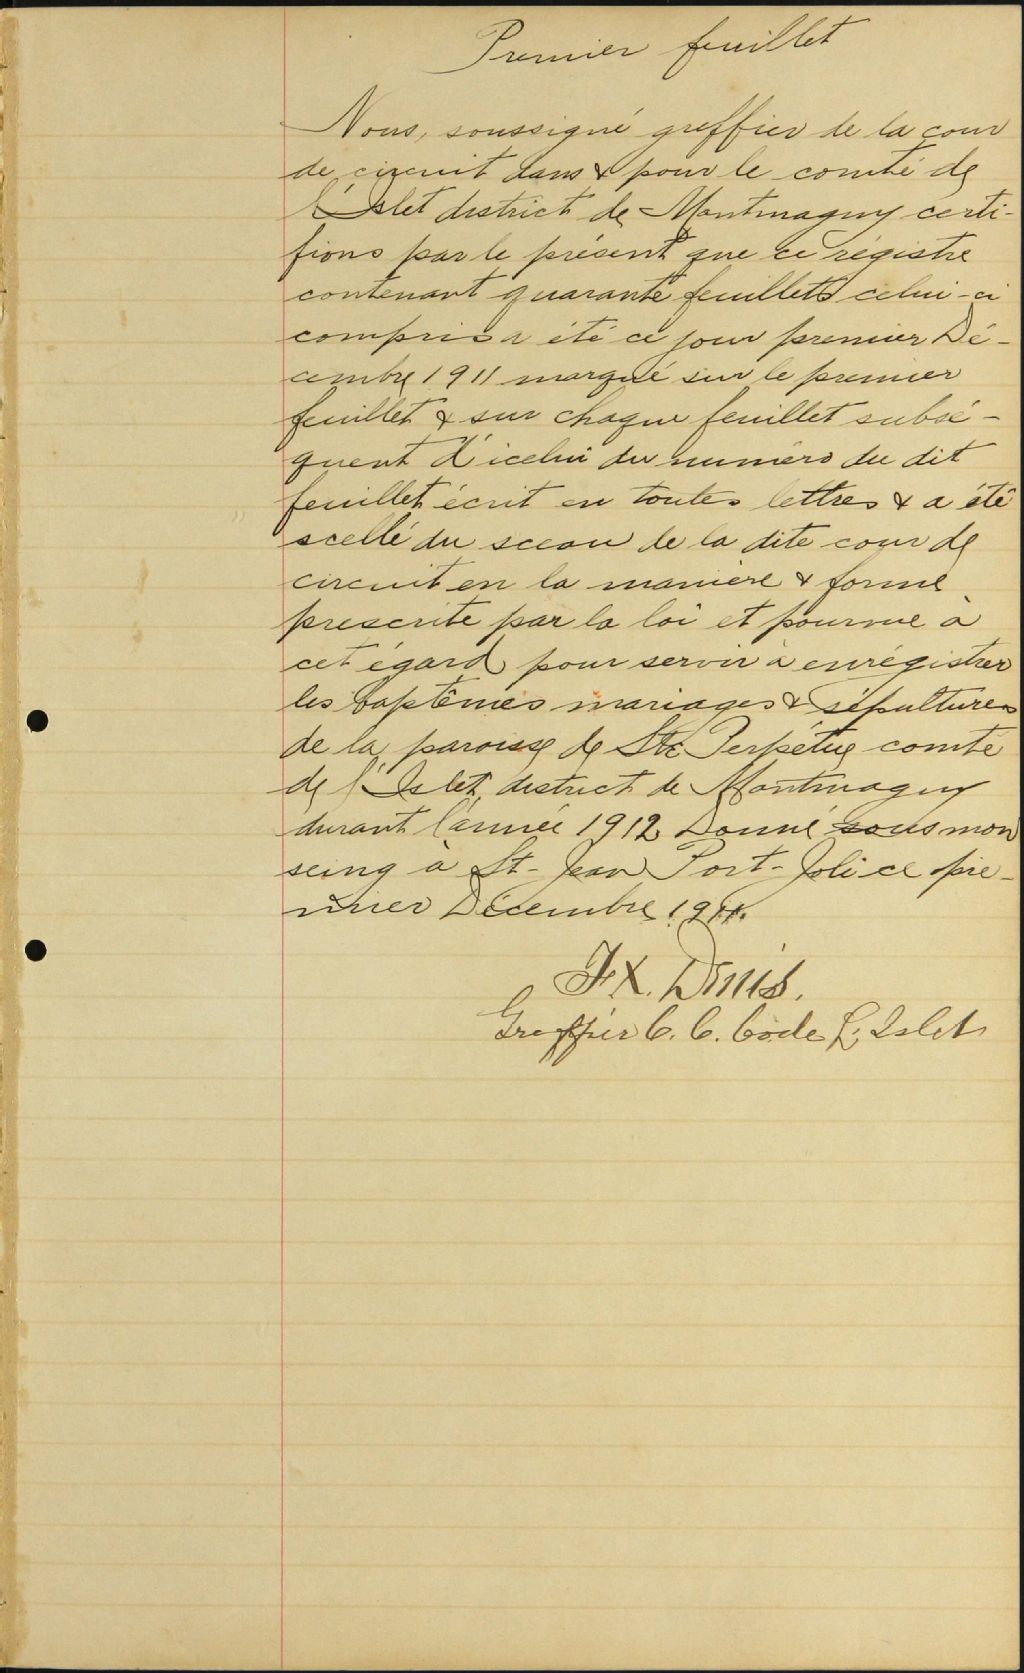 Premier feuillet
Nous, soussigné greffier de la cour
de circuit dans & pour le comté de
l'Islet district de Montmagny certi-
fions par le présent que ce régistre
contenant quarante feuillets celui-ci
compris a été ce jour premier Dé-
cembre 1911 marqué sur le premier
feuillet & sur chaque feuillet subsé-
quent d'icelui du numéro du dit
feuillet écrit en toutes lettres & a été
scellé du sceau de la dite cour de
circuit en la manière & forme
prescrite par la loi et pourvue à
cet égard pour servir à enrégistrer
les baptêmes mariages & sépultures
de la paroisse de Ste Perpétue comté
de l'Islet, district de Montmagny
durant l'année 1912 Donné sous mon
seing à St-Jean Port-Joli ce pre-
mier Décembre 1911.
F.X. Denis.
Greffier C. C. Co de L'Islet